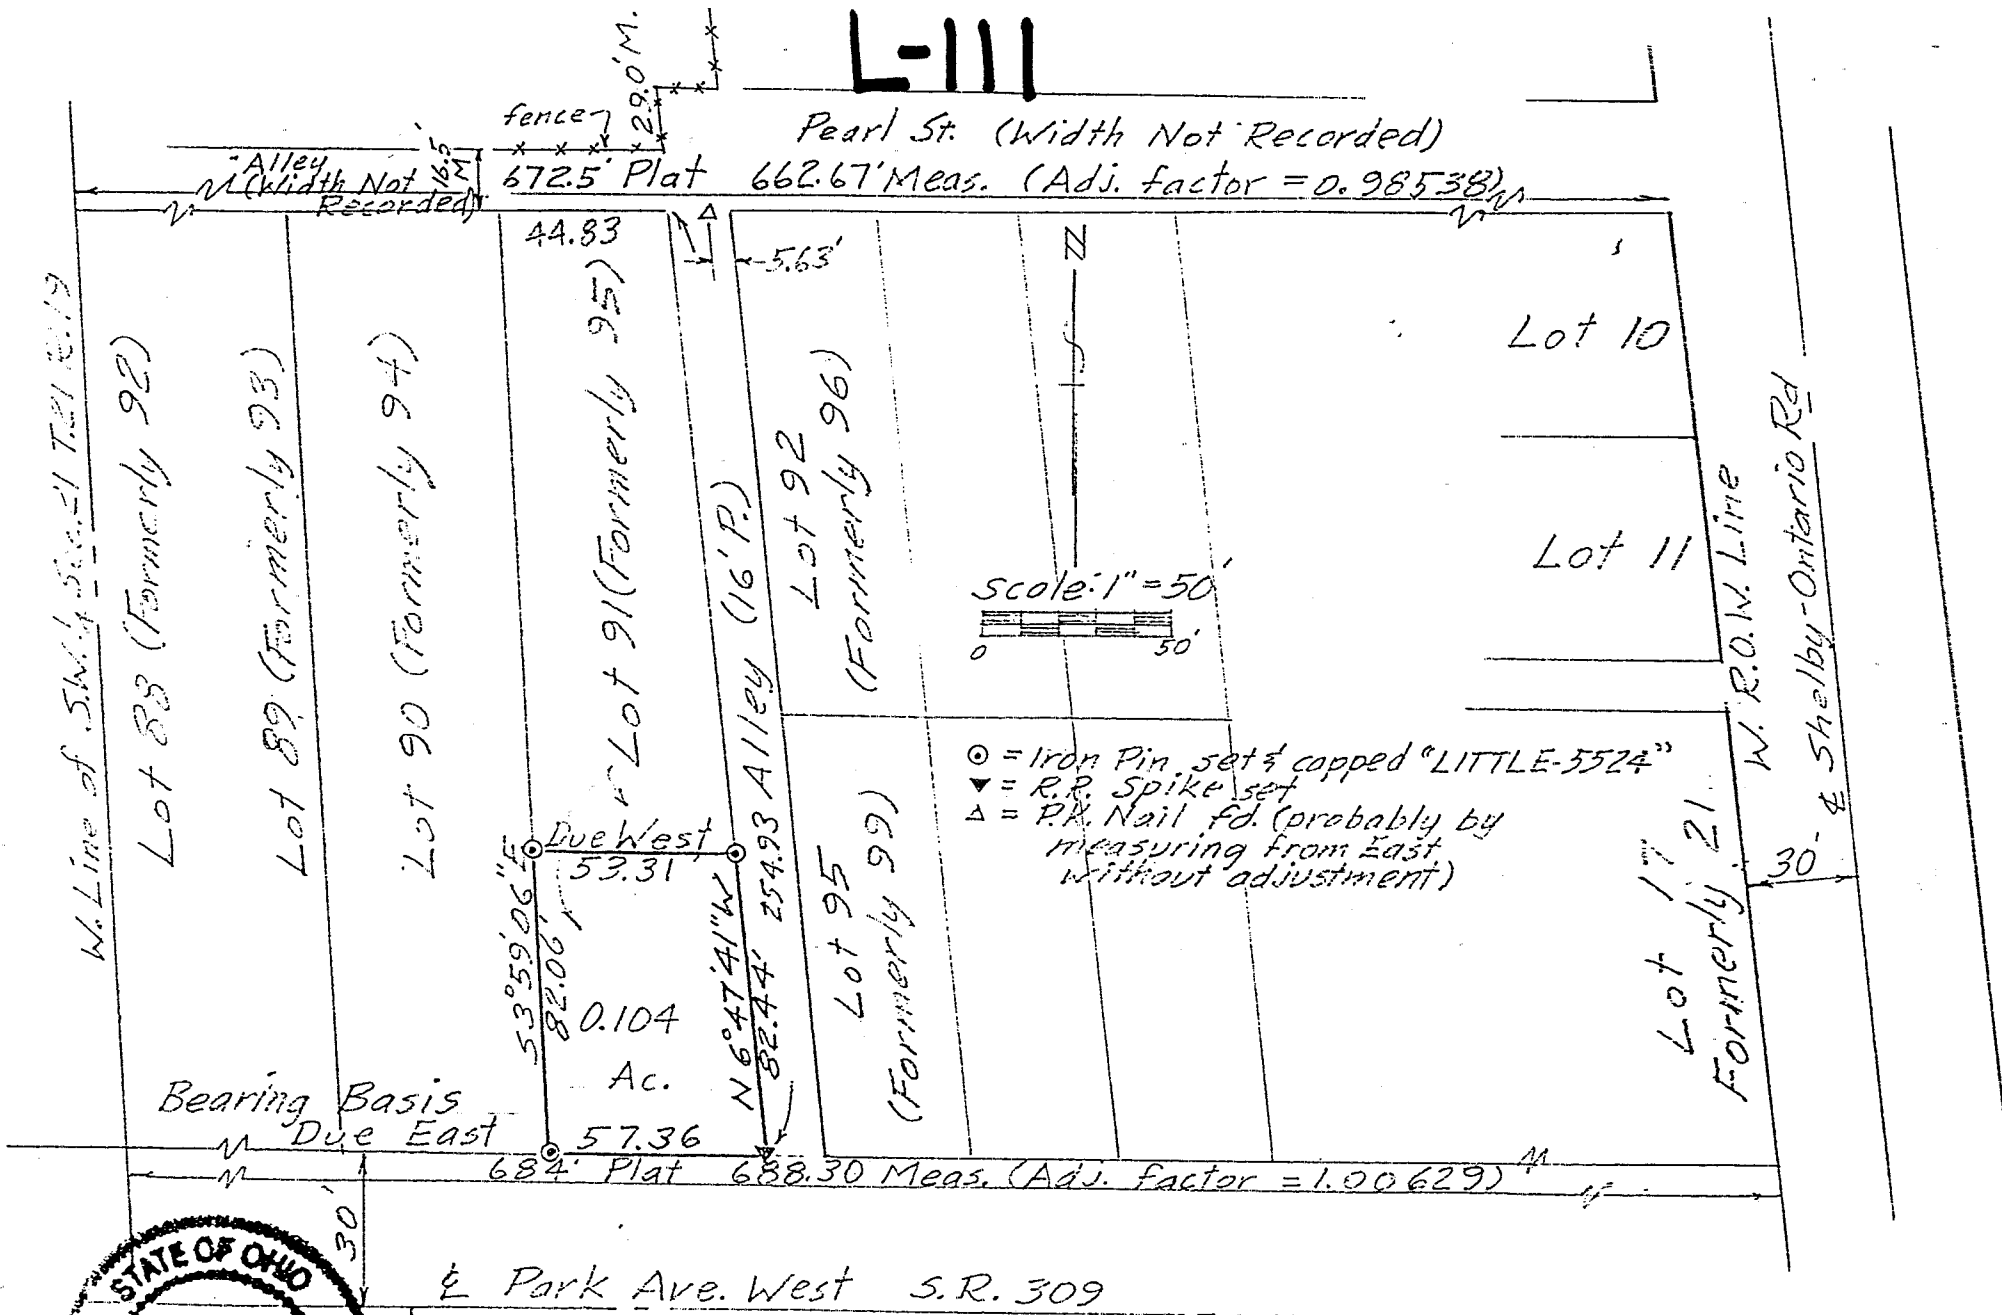 L-111
29.0'M.
fence
Pearl St. (Width Not Recorded)
16.5' M
Alley
(Width Not
Recorded)
672.5' Plat 662.67' Meas. (Adj. factor = 0.98538)
44.83
5.63'
N
W. Line of S.W. 1/4 Sec. 21 T.21 R.19
Lot 88 (Formerly 92)
Lot 89 (Formerly 93)
Lot 90 (Formerly 94)
Lot 91 (Formerly 95)
Alley (16' P.)
254.93
Lot 92
(Formerly 96)
Lot 10
Lot 11
W. R.O.W. Line
℄ Shelby-Ontario Rd
Scale: 1" = 50'
0 50'
⊙ = Iron Pin set & capped "LITTLE-5524"
▼ = R.R. Spike set
△ = P.K. Nail fd. (probably by
measuring from East
without adjustment)
Lot 95
(Formerly 99)
Lot 17
Formerly 21
30'
Due West
53.31'
S3°59'06"E
82.06'
0.104
Ac.
N6°47'41"W
82.44'
Bearing Basis
Due East
57.36
684' Plat 688.30 Meas. (Adj. factor = 1.00629)
30'
STATE OF OHIO
℄ Park Ave. West S.R. 309